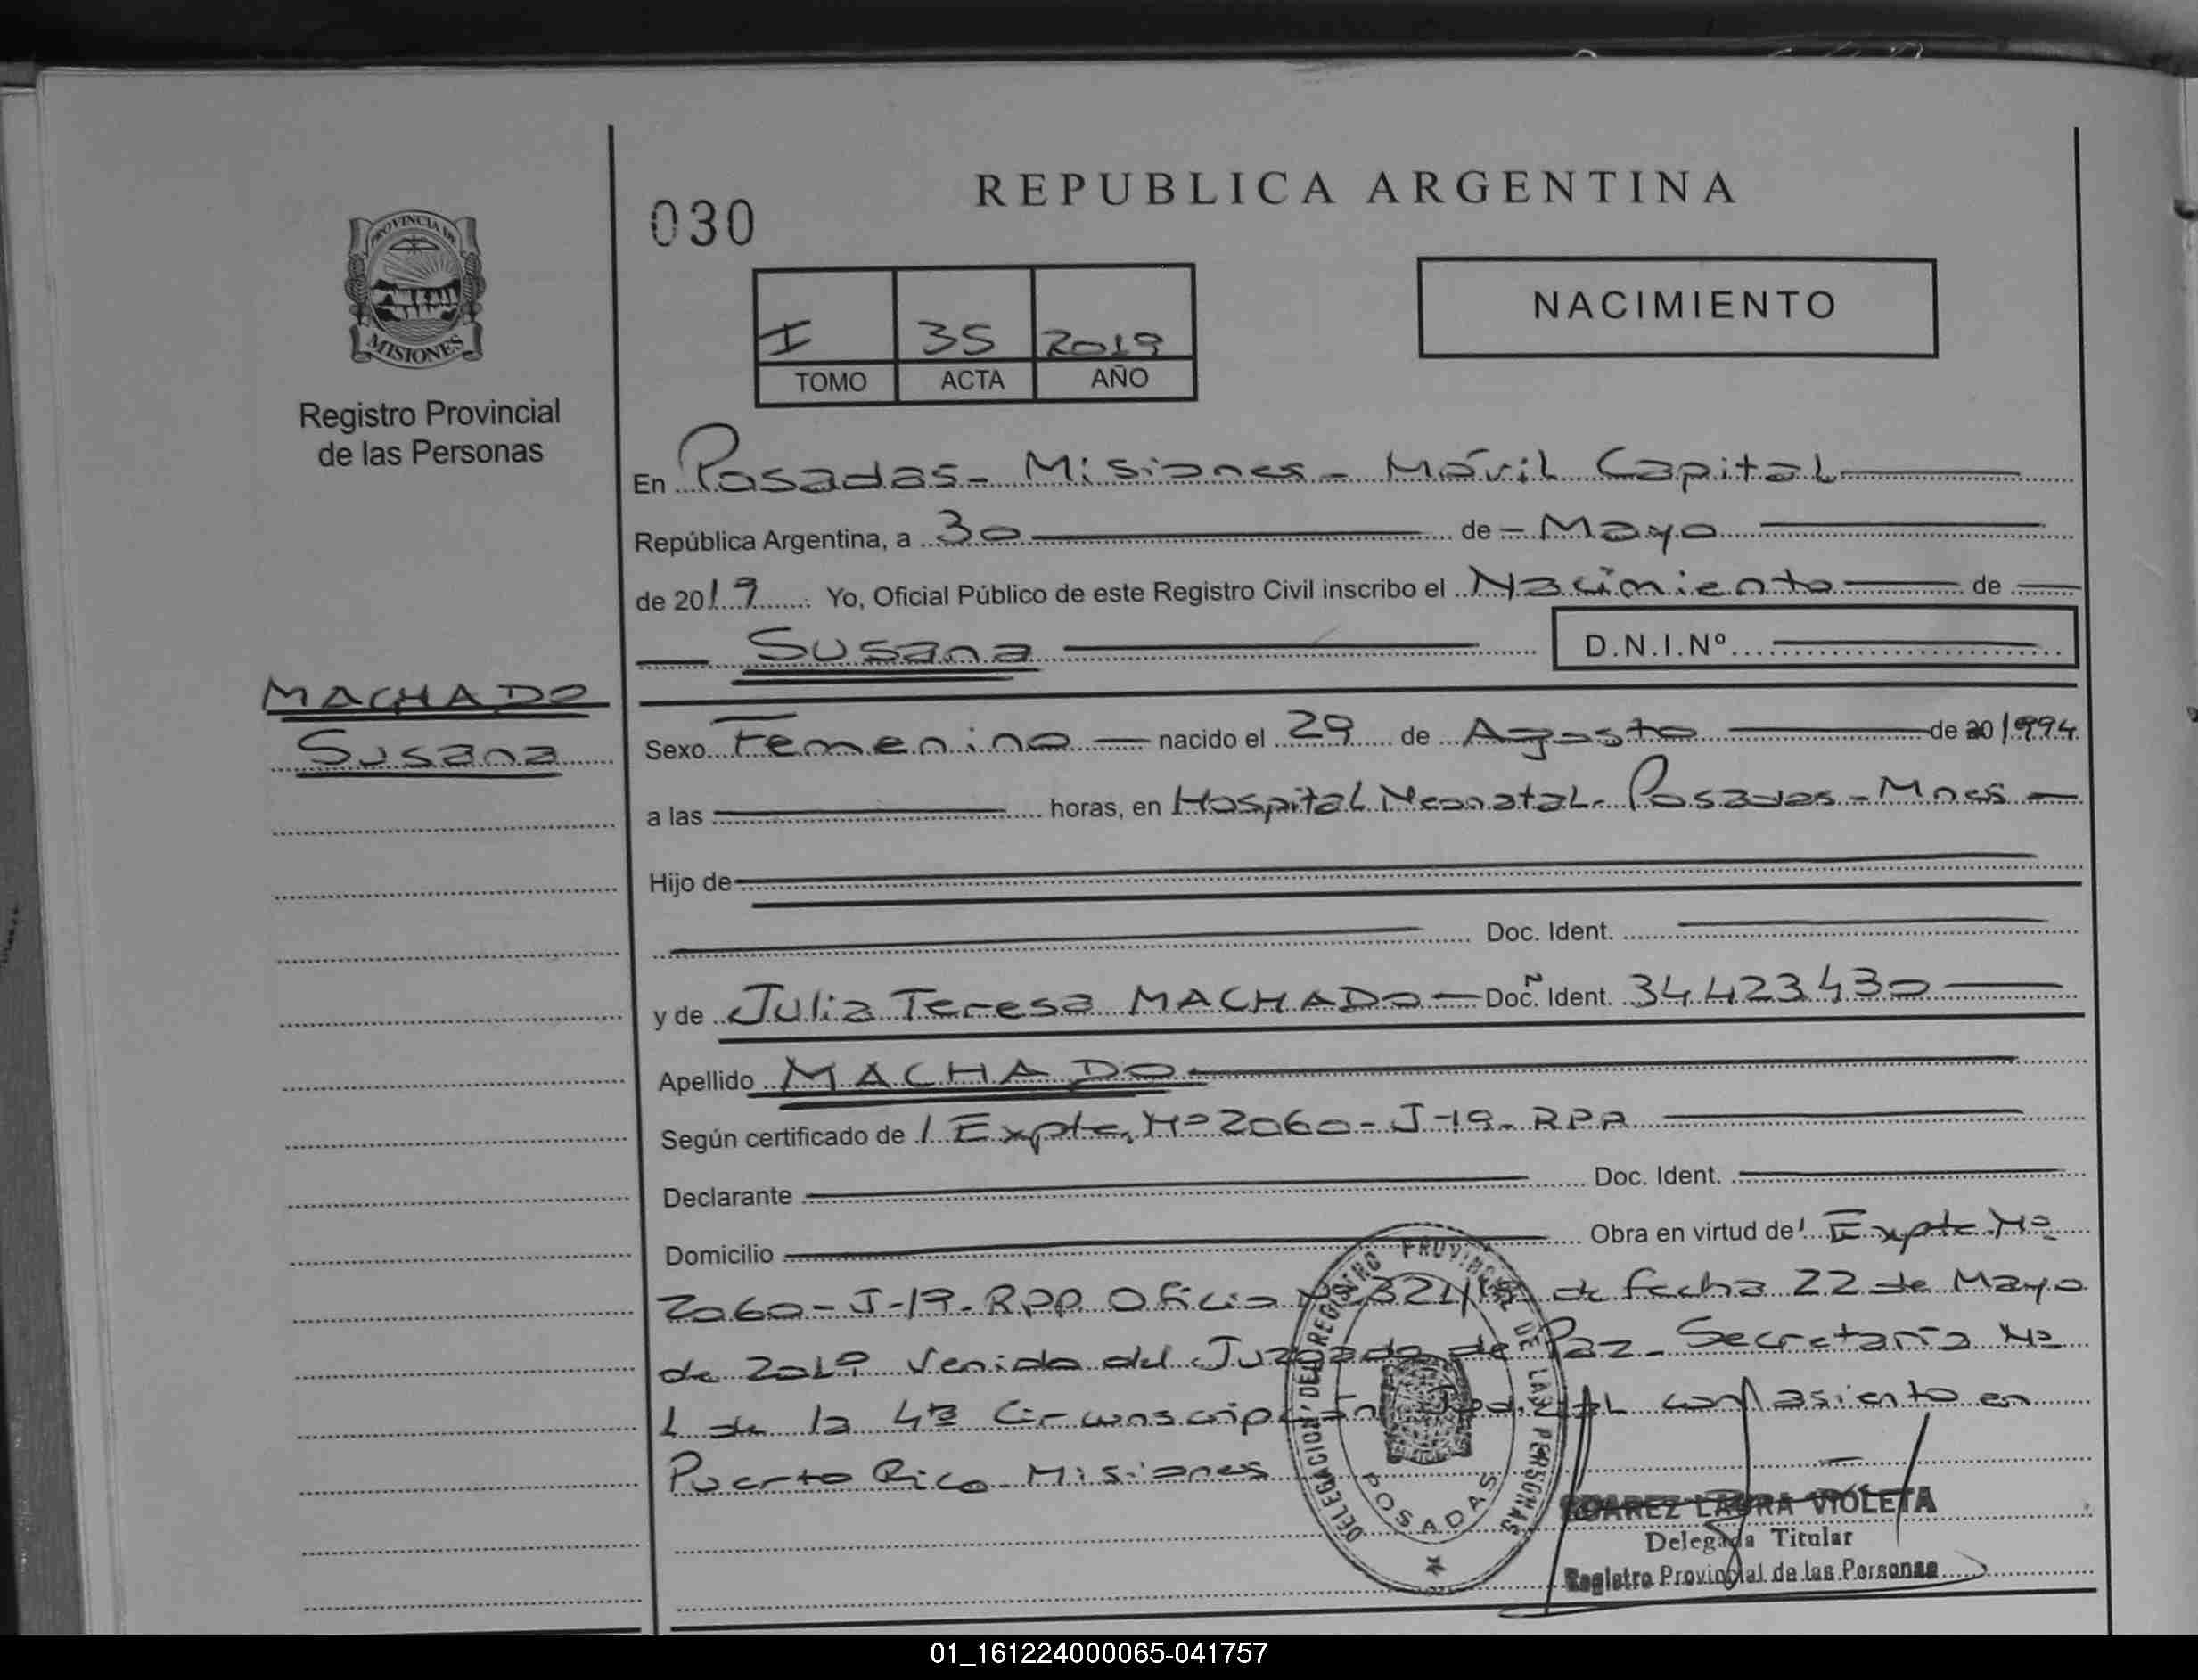 REPUBLICA ARGENTINA
030
NACIMIENTO
I 35 2019
TOMO ACTA AÑO
PROVINCIA DE
MISIONES
Registro Provincial
de las Personas
En Posadas - Misiones - Móvil Capital
República Argentina, a 30 de Mayo
de 2019 Yo, Oficial Público de este Registro Civil inscribo el Nacimiento de
Susana D.N.I.Nº
MACHADO
Susana
Sexo Femenino nacido el 29 de Agosto de 20 1994
a las horas, en Hospital Neonatal - Posadas - Mnes
Hijo de
Doc. Ident.
y de Julia Teresa MACHADO Doc. Ident. 34423430
Apellido MACHADO
Según certificado de Expte. Nº 2060 - J-19 - RPP
Declarante Doc. Ident.
Domicilio Obra en virtud de Expte Nº
2060 - J-19 - RPP Oficio Nº 321/19 de fecha 22 de Mayo
de 2019 Venido del Juzgado de Paz - Secretaría Nº
1 de la 4ª Circunscripción Judicial con asiento en
Puerto Rico - Misiones
DELEGACION DEL REGISTRO PROVINCIAL DE LAS PERSONAS
POSADAS
SUAREZ LAURA VIOLETA
Delegada Titular
Registro Provincial de las Personas
01_161224000065-041757